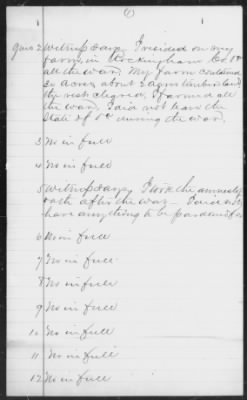 (1)
Ques 2 Witness says I resided on my
farm, in Rockingham Co Va
all the war. My farm contained
acres about 2 acres timberland
the rest cleared. I farmed all
the war. I did not leave the
State of Va during the war.
3 No in full
4 No in full
5 Witness says I took the amnesty
oath after the war - I did not
have anything to be pardoned for
6 No in full
7 No in full
8 No in full
9 No in full
10 No in full
11 No in full
12 No in full